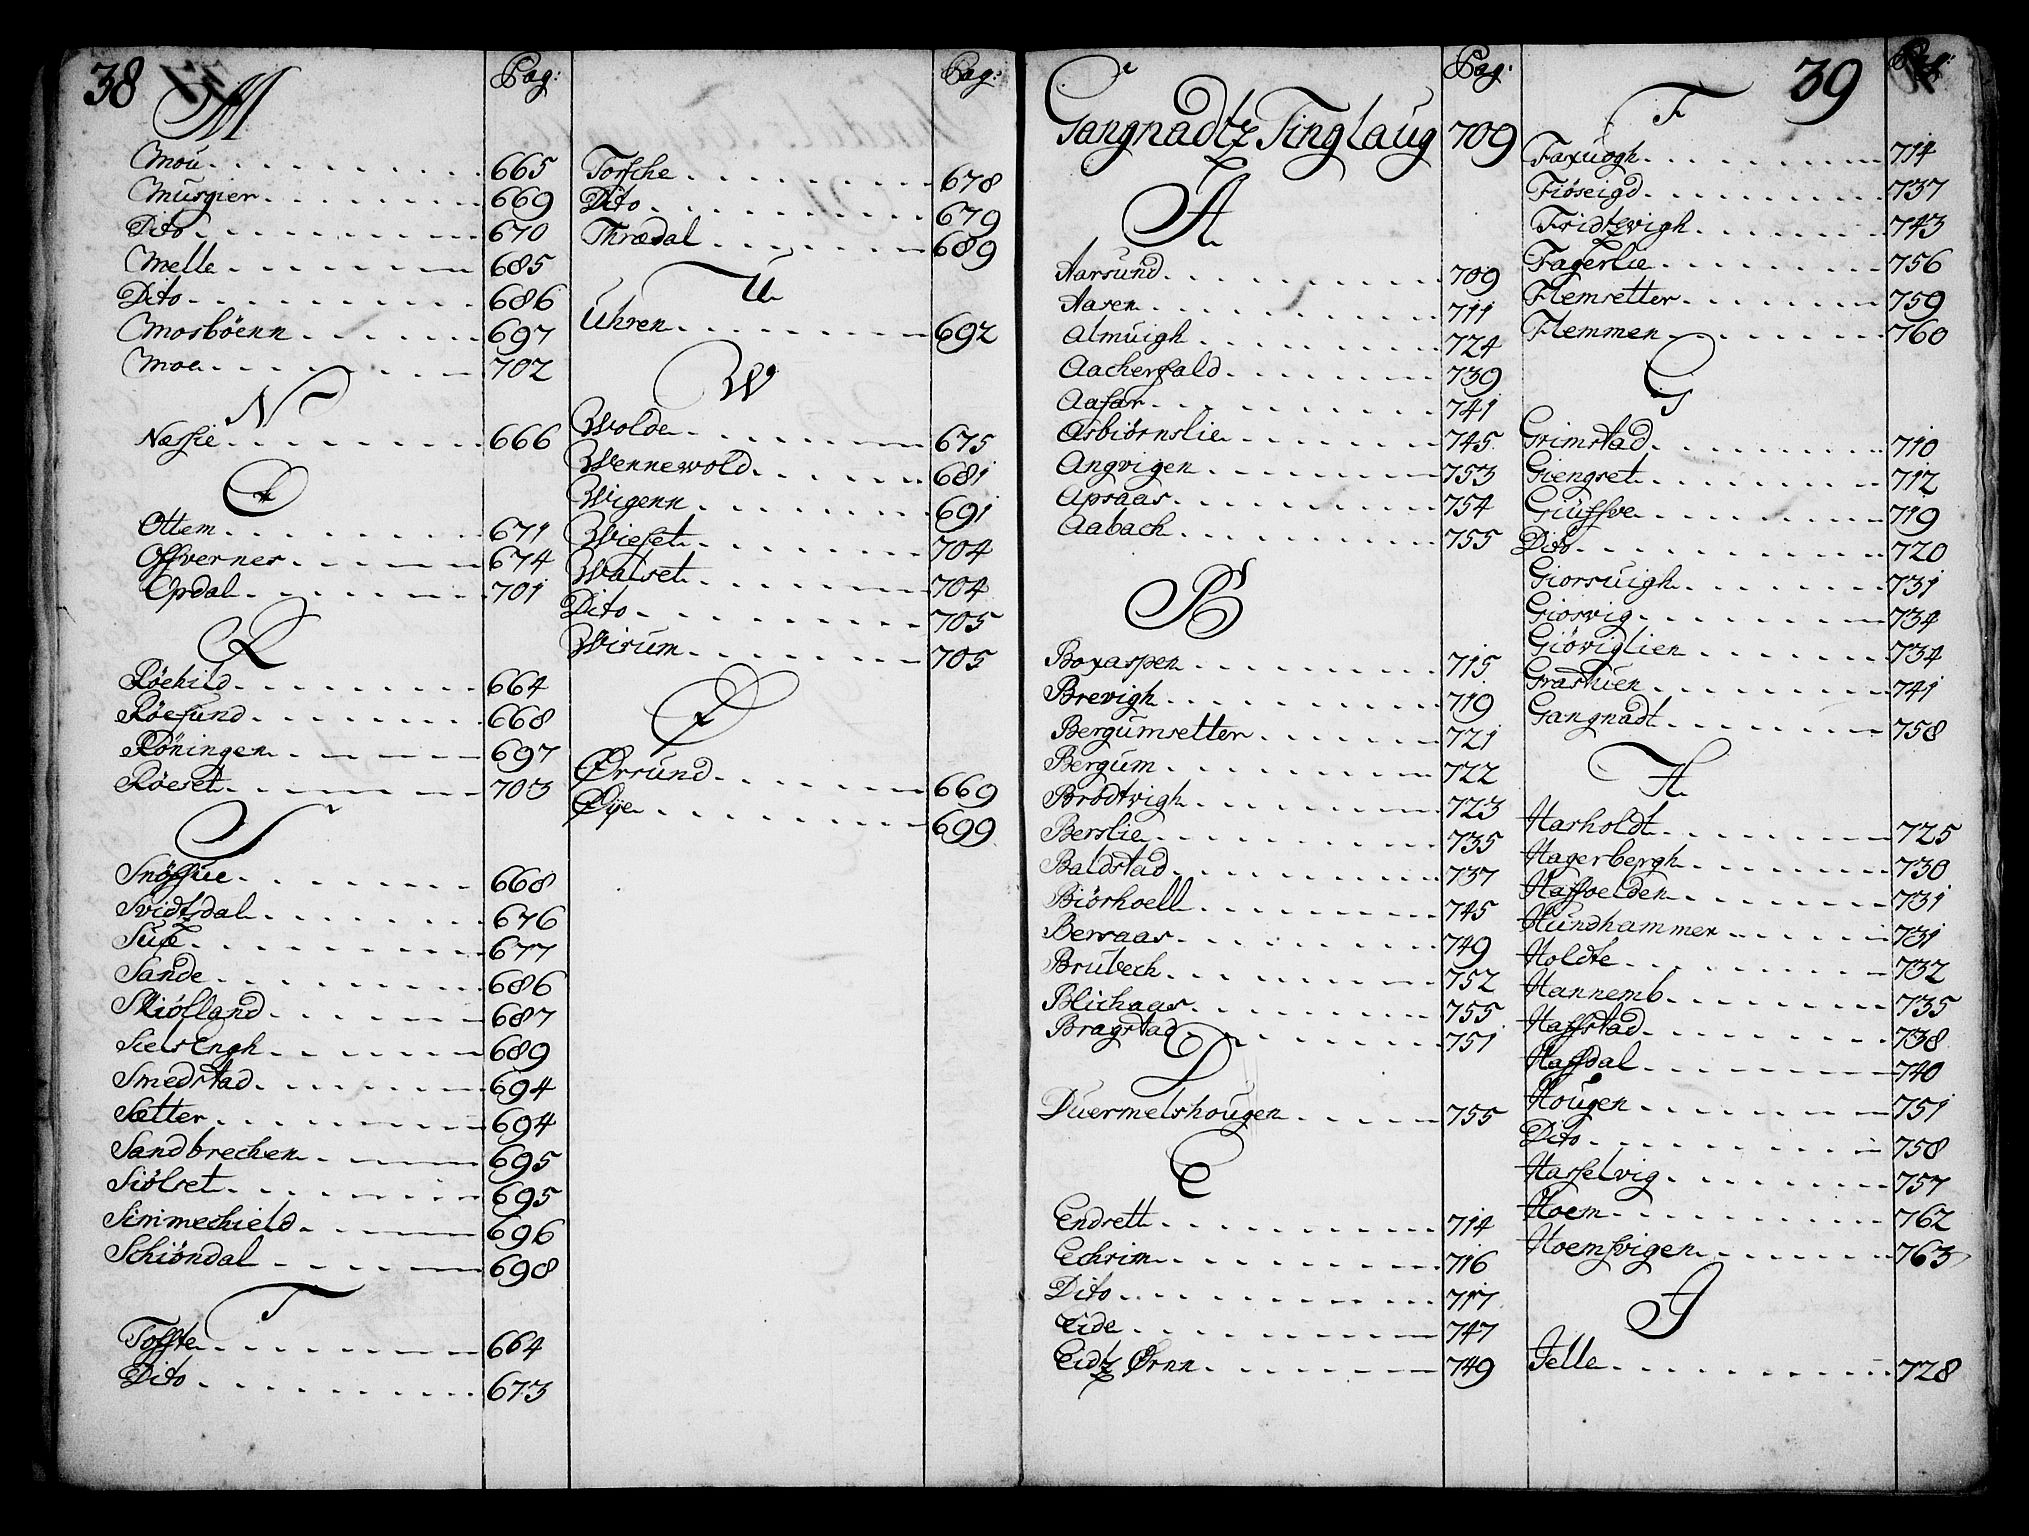 38
M
Pag:
Mou 665
Musgier 669
Dito 670
Melle 685
Dito 686
Mosböenn 697
Moe 702
N
Næssie 666
O
Ottem 671
Offverner 674
Opdal 701
R
Röehild 664
Röesund 668
Röningen 697
Röeset 703
S
Snöffue 668
Svidtsdal 676
Sufe 677
Sande 686
Skiölland 687
SielsEngh 689
Smedstad 694
Sætter 694
Sandbrechen 695
Siölset 695
Simmechield 696
Schiöndal 698
T
Toffte 664
Dito 673
Pag:
Torsche 678
Dito 679
Thrædal 689
U
Uhren 692
W
Wolde 675
Wennewold 681
Wigenn 691
Wieset 704
Walset 704
Dito 705
Wirum 705
Ø
Ørsund 669
Øye 699
Pag:
Gangnadtz Tinglaug 709
A
Aarsund 709
Aasen 711
Almuigh 724
Aacherfald 739
Aafar 741
Asbiörnslie 745
Angvigen 753
Apsaas 754
Aabach 755
B
Boxaspen 715
Brevigh 719
Bergumsetter 721
Bergum 722
Brödtvigh 723
Berslie 735
Baldstad 737
Biörhoell 745
Bersaas 749
Brubech 752
Blichaas 755
Bragstad 751
D
Duermelshougen 755
E
Endrett 714
Echrim 716
Dito 717
Eide 747
Eidtz Ørnn 749
39
Pag:
F
Faxuogh 714
Fiöseigd 737
Fridtzvigh 743
Fagerlie 756
Flemsetter 759
Flemmen 760
G
Grimstad 710
Giengset 712
Giuffve 719
Dito 720
Giorsuigh 731
Giosvig 734
Giöviglien 734
Grastuen 741
Gangnadt 758
H
Harholdt 725
Hagerbergh 730
Haffvelden 731
Hundhammer 731
Holdte 732
Hannemb 735
Haffstad 738
Haffdal 740
Hougen 751
Dito 758
Hasselvig 757
Hoem 762
Hoemsvigen 763
J
Jelle 728